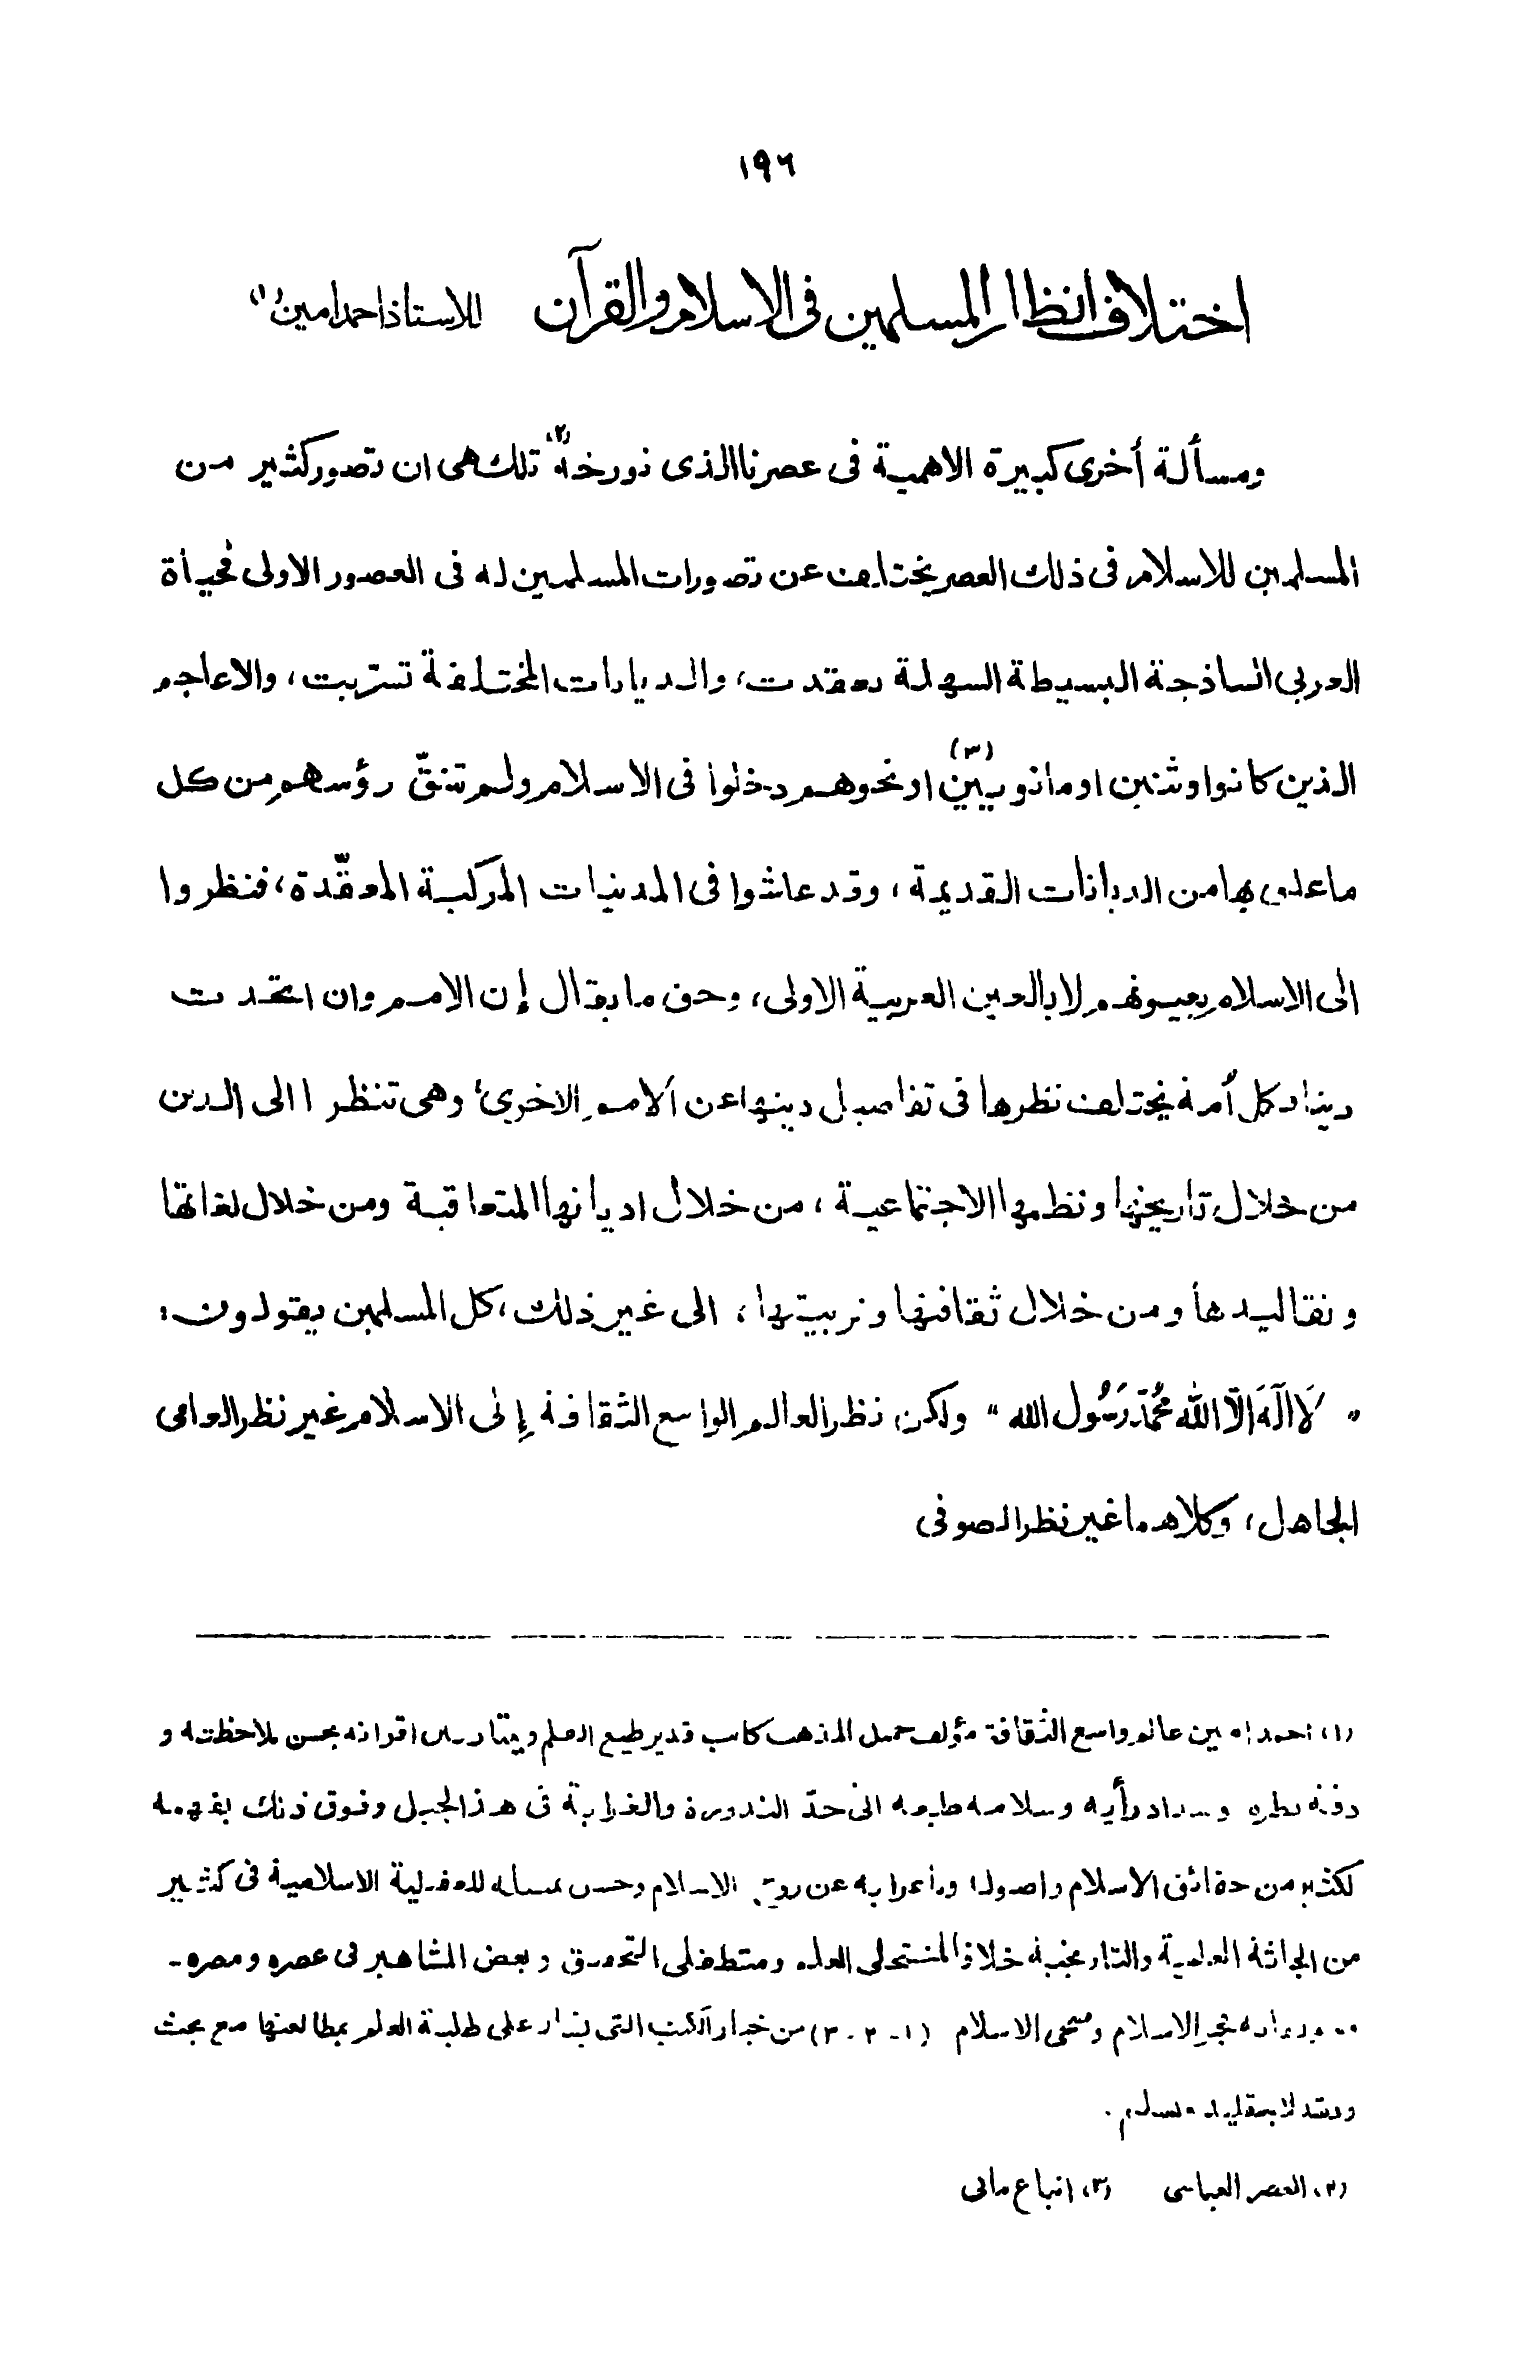 ١٩٦
اختلاف انظار المسلمين فى الاسلام والقرآن للاستاذ احمد امين (١)
ومسألة أخرى كبيرة الاهمية فى عصرنا الذى نؤرخه (٢) تلك هى ان تصور كثير من
المسلمين للاسلام فى ذلك العصر يختلف عن تصورات المسلمين له فى العصور الاولى فحياة
العربى الساذجة البسيطة السهلة تعقدت، والديانات المختلفة تسربت، والاعاجم
الذين كانوا وثنين او مانويين (٣) او نحوهم دخلوا فى الاسلام ولم تنقّ رؤسهم من كل
ما علق بها من الديانات القديمة، وقد عاشوا فى المدنيات المركبة المعقّدة، فنظروا
الى الاسلام بعيونهم لا بالعين العربية الاولى، وحق ما يقال إن الامم وان اتحدت
دينا فكل أمة يختلف نظرها فى تفاصيل دينها عن الامم الاخرى، وهى تنظر الى الدين
من خلال تاريخها ونظمها الاجتماعية، من خلال اديانها المتعاقبة ومن خلال لغاتها
وتقاليدها ومن خلال ثقافتها وتربيتها، الى غير ذلك، كل المسلمين يقولون:
" لَا اِلٰهَ اِلَّا اللّٰه مُحَمَّد رَسُول الله " ولكن نظر العالم الواسع الثقافة إلى الاسلام غير نظر العامى
الجاهل، وكلاهما غير نظر الصوفى
(١) احمد امين عالم واسع الثقافة مؤلف جميل المذهب كاتب قدير طيع القلم ويمتاز بين اقرانه بحسن ملاحظته و
دقة نظره وسداد رأيه وسلامة طبعه الى حدّ الندورة والغرابة فى هذا الجيل وفوق ذلك بفهمه
لكثير من حقائق الاسلام واصوله واعرابه عن روح الاسلام وحسن تمثيله للعقلية الاسلامية فى كثير
من ابحاثه العلمية والتاريخية خلافا لمنتحلى العلم ومتطفلى التحقيق وبعض المشاهير فى عصره ومصره -
فجر الاسلام وضحى الاسلام (١ - ٢ - ٣) من خيار الكتب التى يشار على طلبة العلم بمطالعتها مع بحث
ونقد لا بتقليد وتسليم.
(٢) العصر العباسى (٣) اتباع مانى